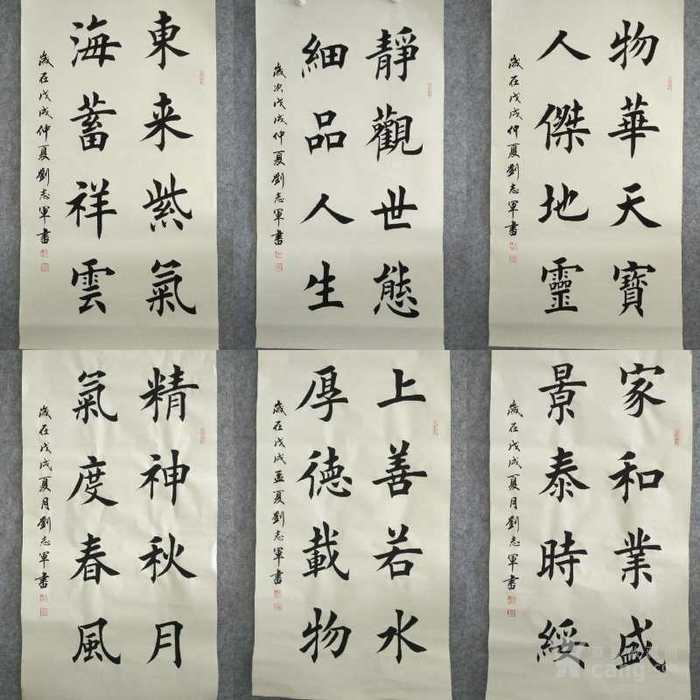 東来紫氣
海蓄祥雲
歲在戊戌仲夏劉志軍書
靜觀世態
細品人生
歲次戊戌仲夏劉志軍書
物華天寶
人傑地靈
歲在戊戌仲夏劉志軍書
精神秋月
氣度春風
歲在戊戌夏月劉志軍書
上善若水
厚德載物
歲在戊戌孟夏劉志軍書
家和業盛
景泰時綏
歲在戊戌夏月劉志軍書